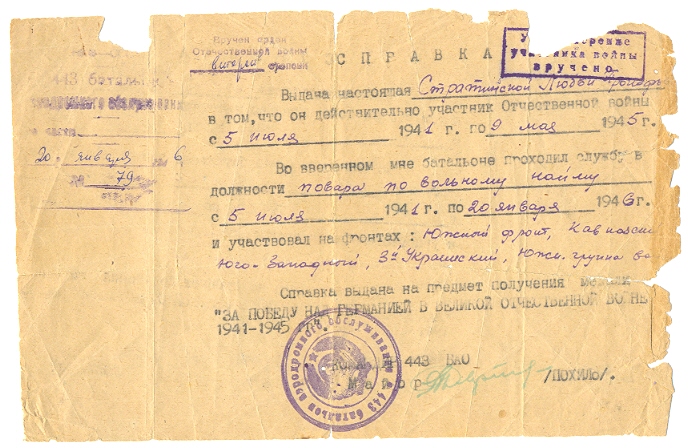 443 батальон
аэродромного обслуживания
20. января
79
Вручен орден
Отечественной войны
второй степени
СПРАВКА
участника войны
вручено
Выдана настоящая Стратинской Любви
в том, что он действительно участник Отечественной войны
с 5 июля 1941 г. по 9 мая 1945г.
Во вверенном мне батальоне проходил службу в
должности повара по вольному найму
с 5 июля 1941 г. по 20 января 1946г.
и участвовал на фронтах: Южный фронт,
Юго-Западный, 3й Украинский, Южн. группа
Справка выдана на предмет получения медали
"ЗА ПОБЕДУ НАД ГЕРМАНИЕЙ В ВЕЛИКОЙ ОТЕЧЕСТВЕННОЙ ВОЙНЕ
1941-1945
443 БАО
Майор /ПОХИЛО/.
443 батальон аэродромного обслуживания